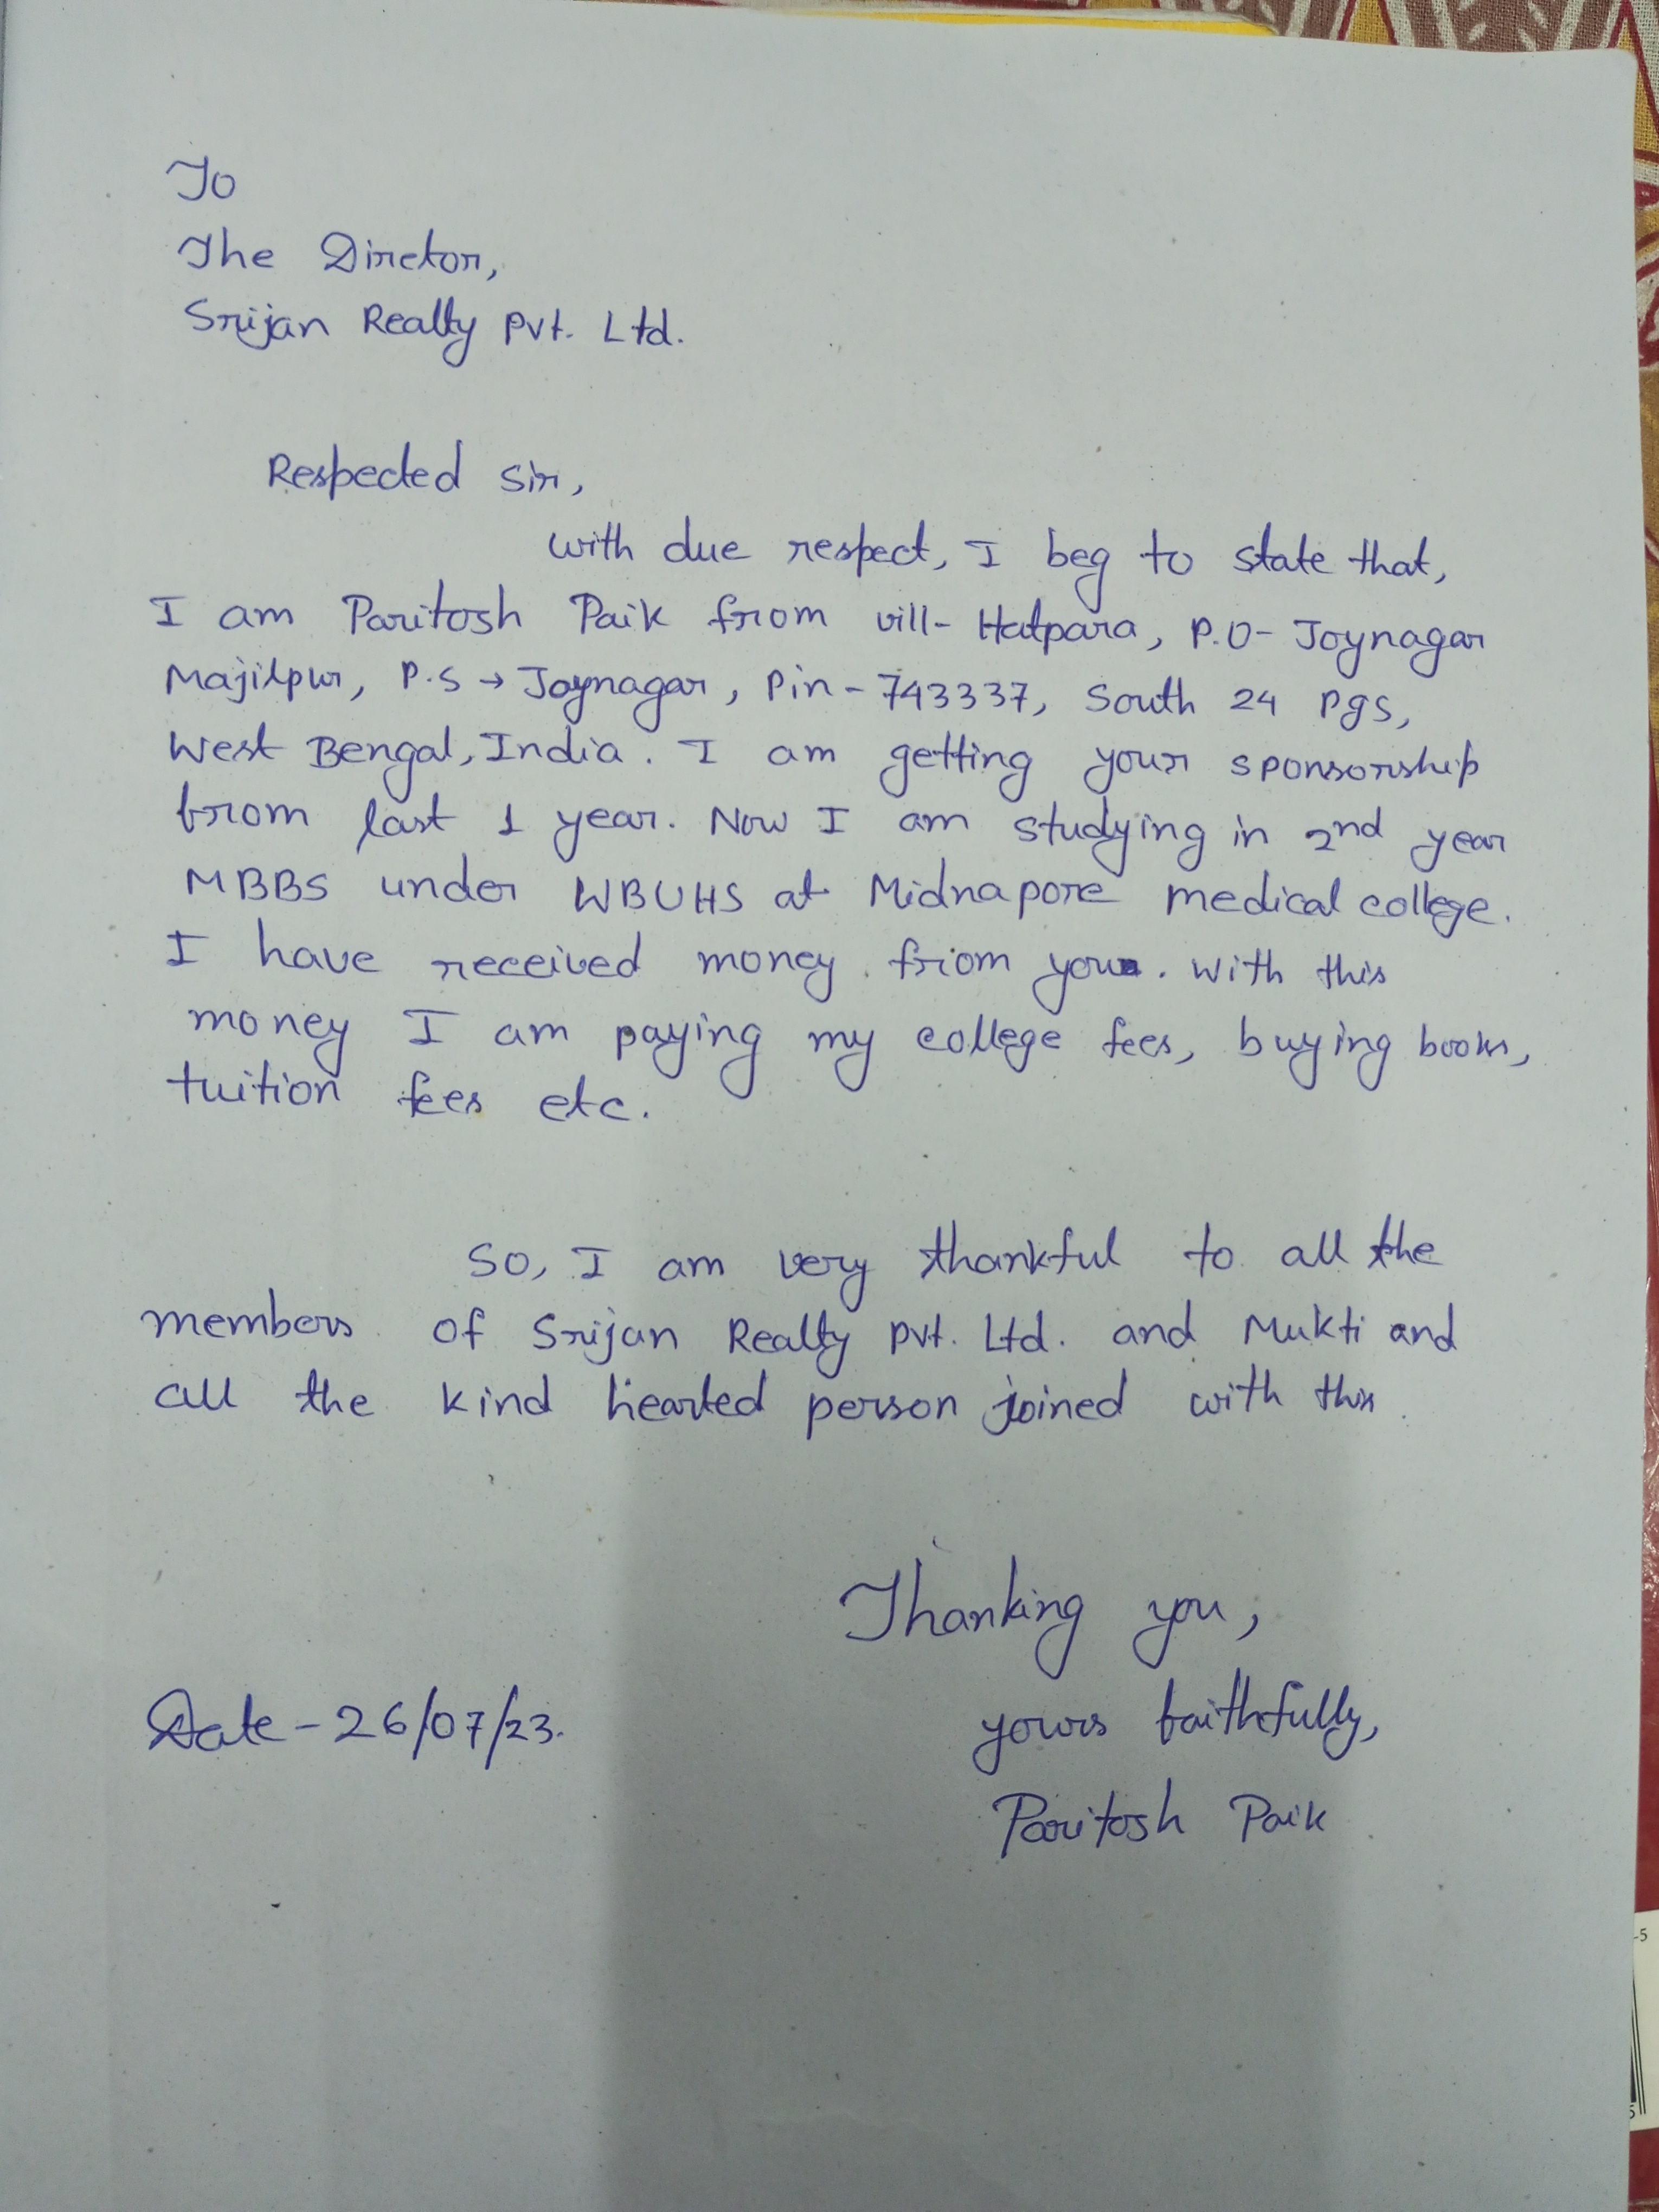 To
The Diretor,
Srijan Realty Pvt. Ltd.
Respected Sir,
with due respect, I beg to state that,
I am Paritosh Paik from vill- Hatpara, P.O- Joynagar
Majilpur, P.S → Joynagar, Pin - 743337, South 24 Pgs,
West Bengal, India. I am getting your sponsorship
from last 1 year. Now I am studying in 2nd year
MBBS under WBUHS at Midnapore medical college.
I have received money from you. With this
money I am paying my college fees, buying books,
tuition fees etc.
So, I am very thankful to all the
members of Srijan Realty Pvt. Ltd. and Mukti and
all the kind hearted person joined with this.
Thanking you,
Date - 26/07/23.
yours faithfully,
Paritosh Paik
-5
5